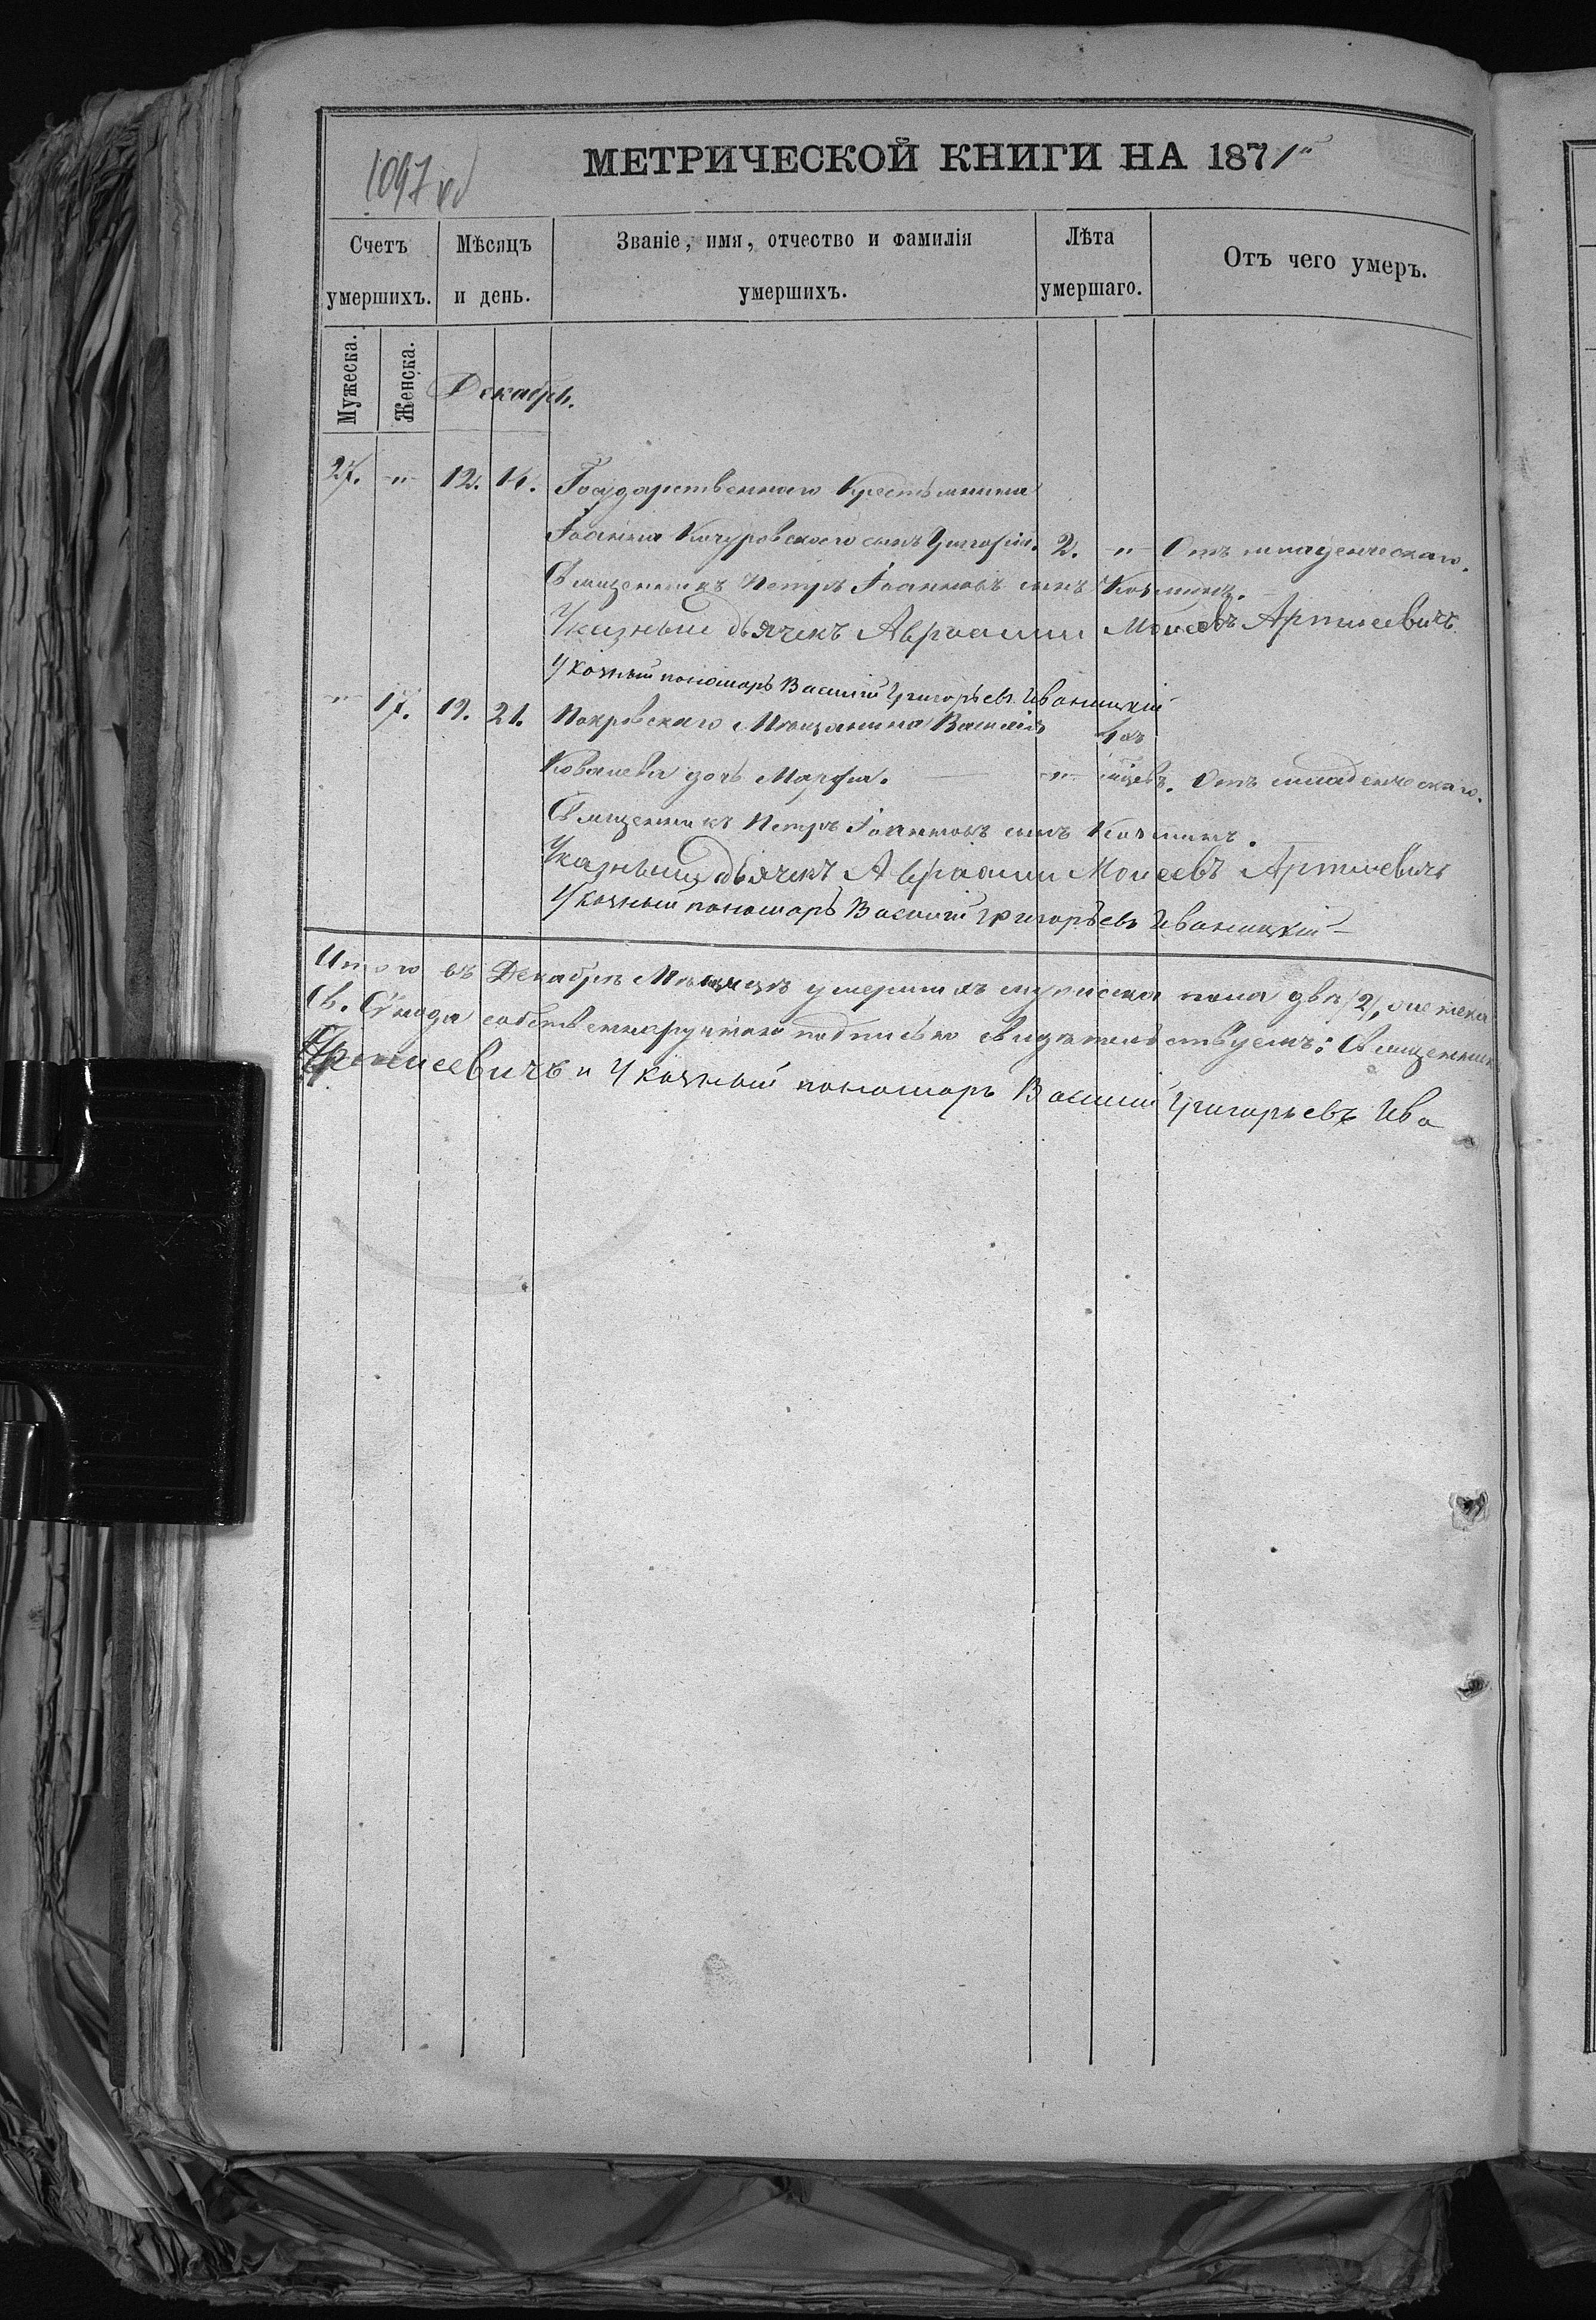 1097 об
МЕТРИЧЕСКОЙ КНИГИ НА 1871й
Счетъ умершихъ.
Мѣсяцъ и день.
Званіе, имя, отчество и фамилія умершихъ.
Лѣта умершаго.
Отъ чего умеръ.
Мужеска.
Женска.
Декабрь.
27. " 12. 14. Государственнаго Крестьянина
Іоанна Кочуровскаго сынъ Григорій. 2. " Отъ младенческаго.
Священникъ Петръ Іоанновъ сынъ
Указный дьячекъ Авраамій Моисеевъ Артисевичъ
Указный пономарь Василій Григорьевъ Иваницкій
" 17. 19. 21. Покровскаго Мѣщанина Василія
Ковалева дочь Марфа. " Отъ младенческаго.
Священникъ Петръ Іоанновъ сынъ
Указный дьячекъ Авраамій Моисеевъ Артисевичъ
Указный пономарь Василій Григорьевъ Иваницкій
Итого въ Декабрѣ Мѣсяцѣ умершихъ мужеска пола два (2), женска
Св. Сѵнода собственноручною подписью свидѣтельствуемъ: Священникъ
Артисевичъ и Указный пономарь Василій Григорьевъ Ива